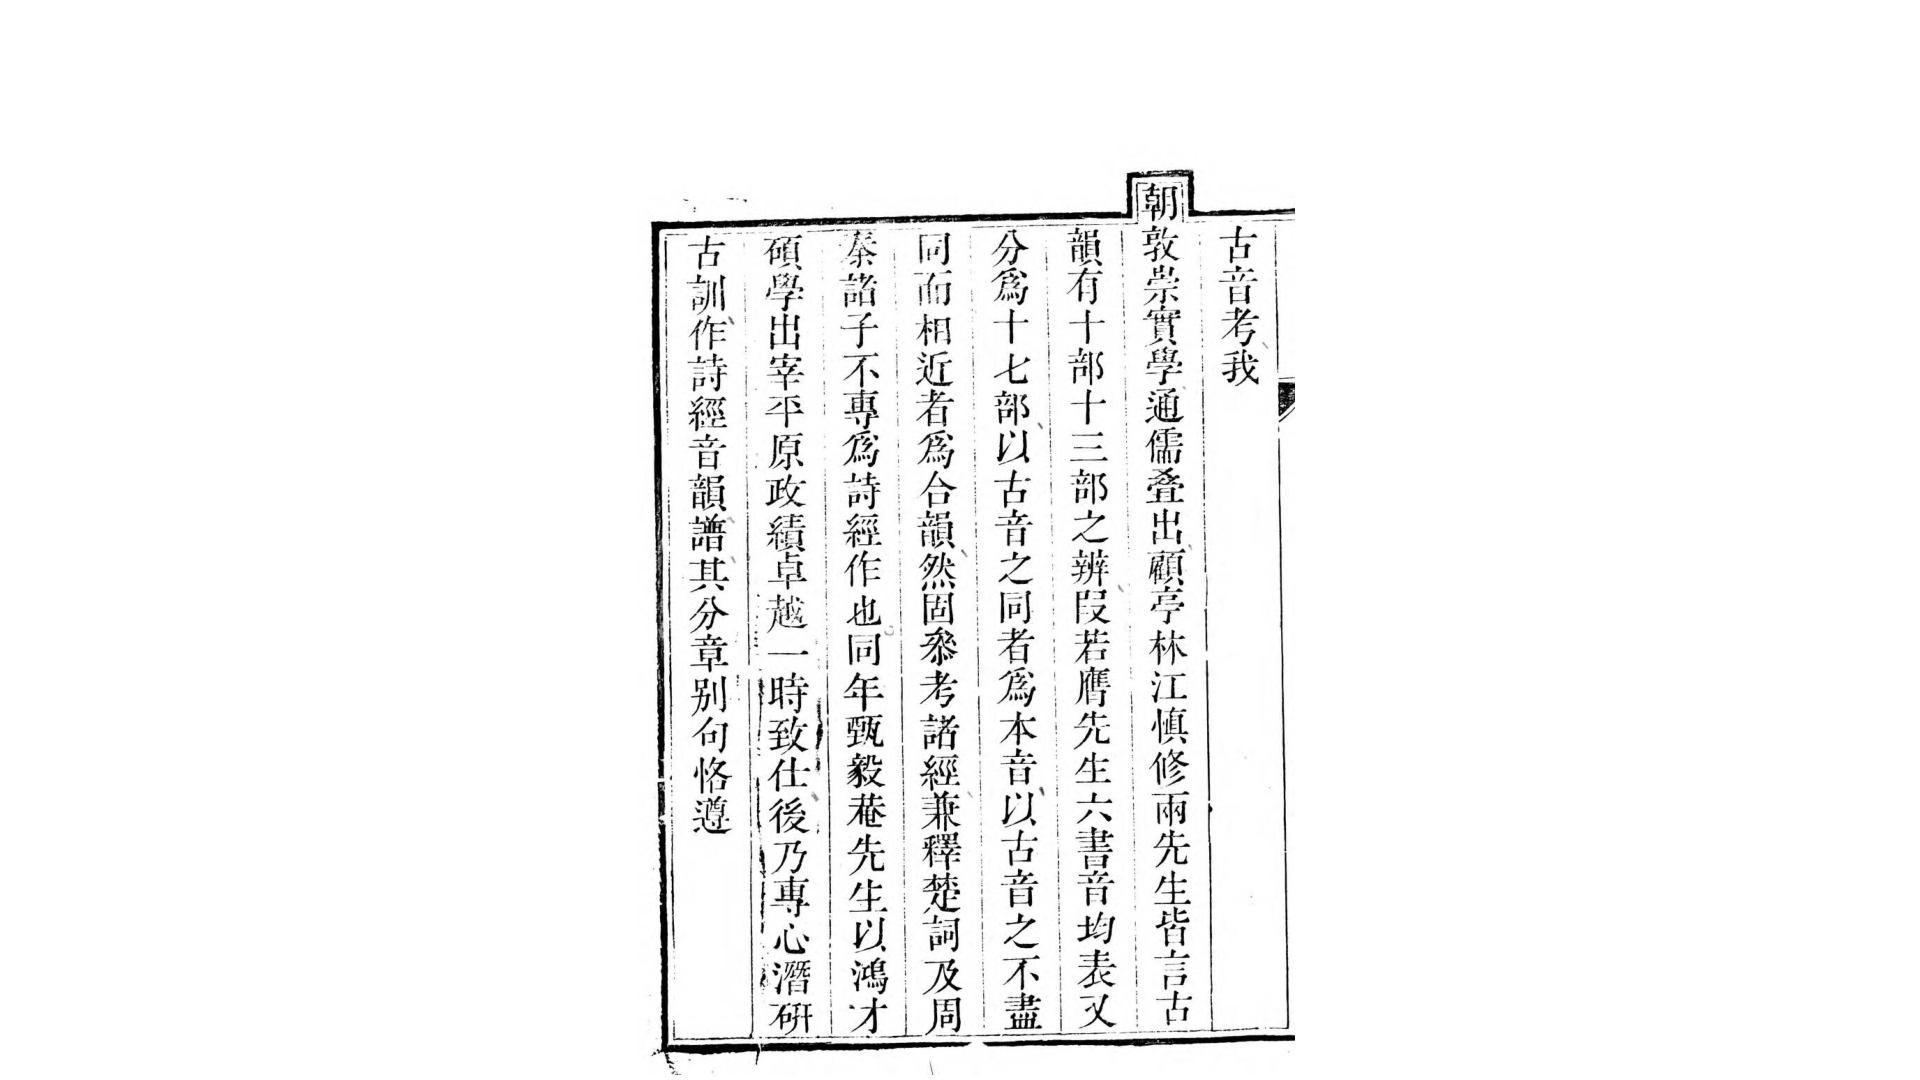 古音考我
朝敦崇實學通儒叠出顧亭林江慎修兩先生皆言古
韻有十部十三部之辨段若膺先生六書音均表又
分爲十七部以古音之同者爲本音以古音之不盡
同而相近者爲合韻然固叅考諸經兼釋楚詞及周
秦諸子不專爲詩經作也同年甄毅菴先生以鴻才
碩學出宰平原政績卓越一時致仕後乃專心潛硏
古訓作詩經音韻譜其分章别句恪遵